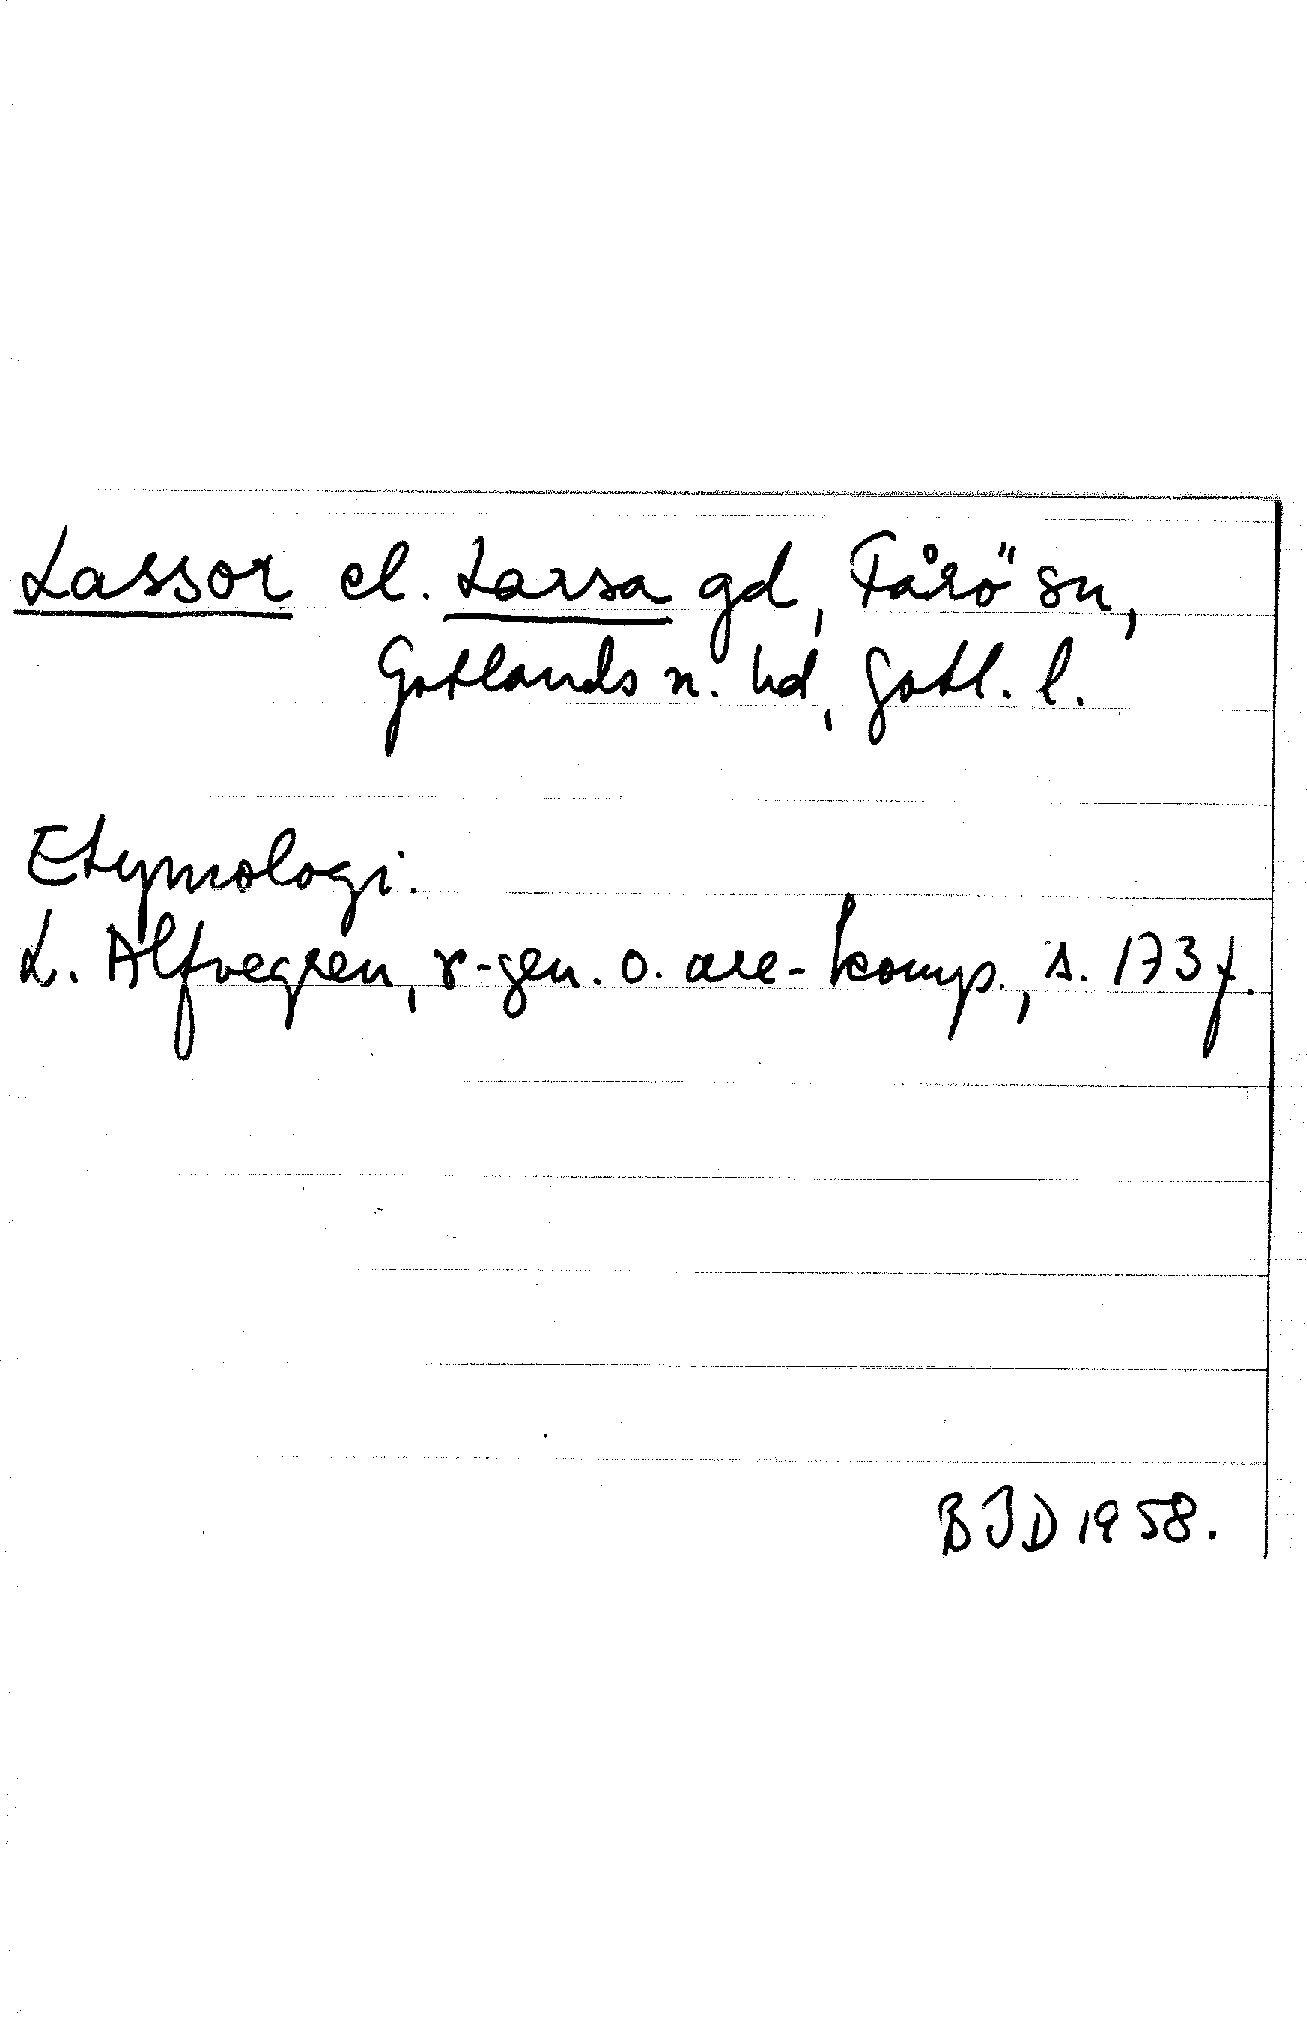 Lassor el. Larsa gd, Fårö sn,
Gotlands n. hd, Gotl. l.
Etymologi.
L. Alfvegren, r-gen. o. are-komp., s. 173 f.
BJD 1958.